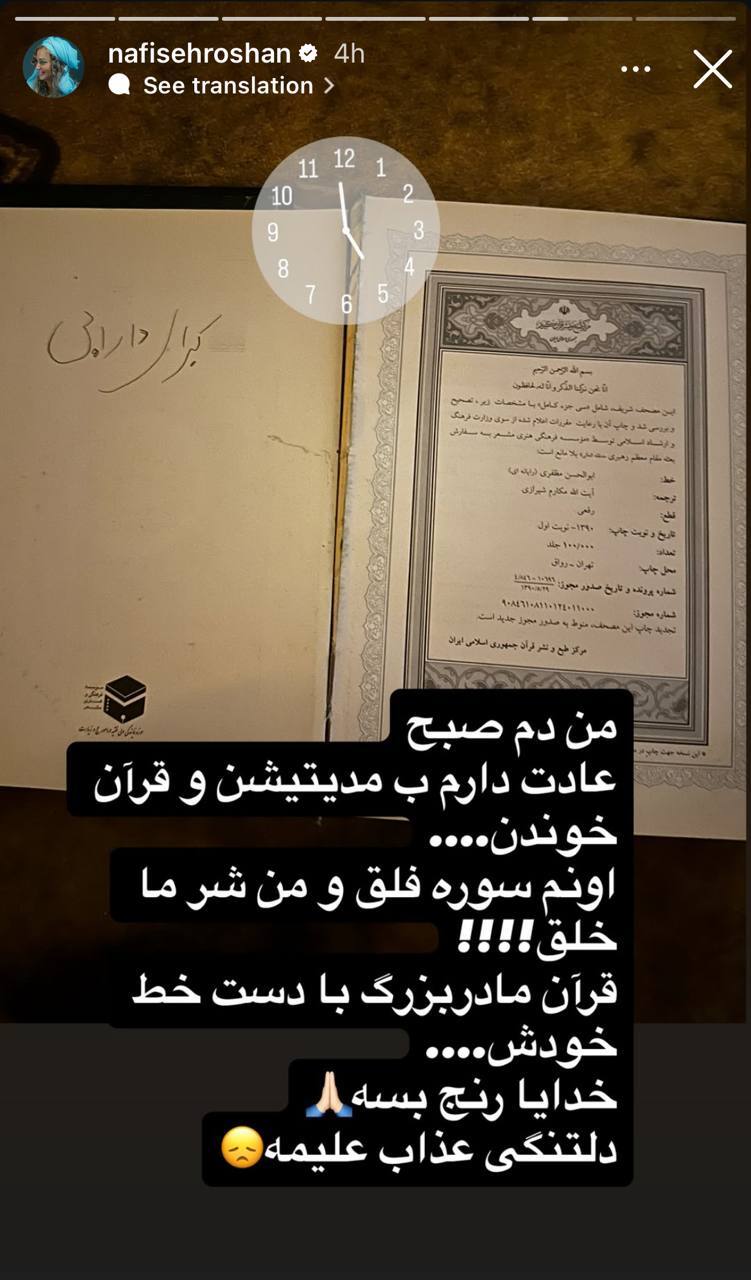 nafisehroshan 4h
See translation
12
11 1
10 2
9 3
8 4
7 5
6
کبرای دارابی
بسم الله الرحمن الرحیم
انّا نحن نزلنا الذکر و انّا له لحافظون
این مصحف شریف، شامل «سی جزء کامل» با مشخصات زیر، تصحیح
و بررسی شد و چاپ آن با رعایت مقررات اعلام شده از سوی وزارت فرهنگ
و ارشاد اسلامی توسط «مؤسسه فرهنگی هنری مشعر به سفارش
بعثه مقام معظم رهبری بلا مانع است:
خط: ابوالحسن مظفری (رایانه ای)
ترجمه: آیت الله مکارم شیرازی
قطع: رقعی
تاریخ و نوبت چاپ: ۱۳۹۰- نوبت اول
تعداد: ۱۰۰/۰۰۰ جلد
محل چاپ: تهران - رواق
شماره پرونده و تاریخ صدور مجوز:
شماره مجوز: ۹۰۸۴۶۱۰۸۱۱۰۱۲۴۰۱۱۰۰۰
تجدید چاپ این مصحف، منوط به صدور مجوز جدید است.
مرکز طبع و نشر قرآن جمهوری اسلامی ایران
* این نسخه جهت چاپ در
موسسه
فرهنگی و
هنری
مشعر
من دم صبح
عادت دارم ب مدیتیشن و قرآن
خوندن....
اونم سوره فلق و من شر ما
خلق!!!!
قرآن مادربزرگ با دست خط
خودش....
خدایا رنج بسه🙏🏻
دلتنگی عذاب علیمه😞